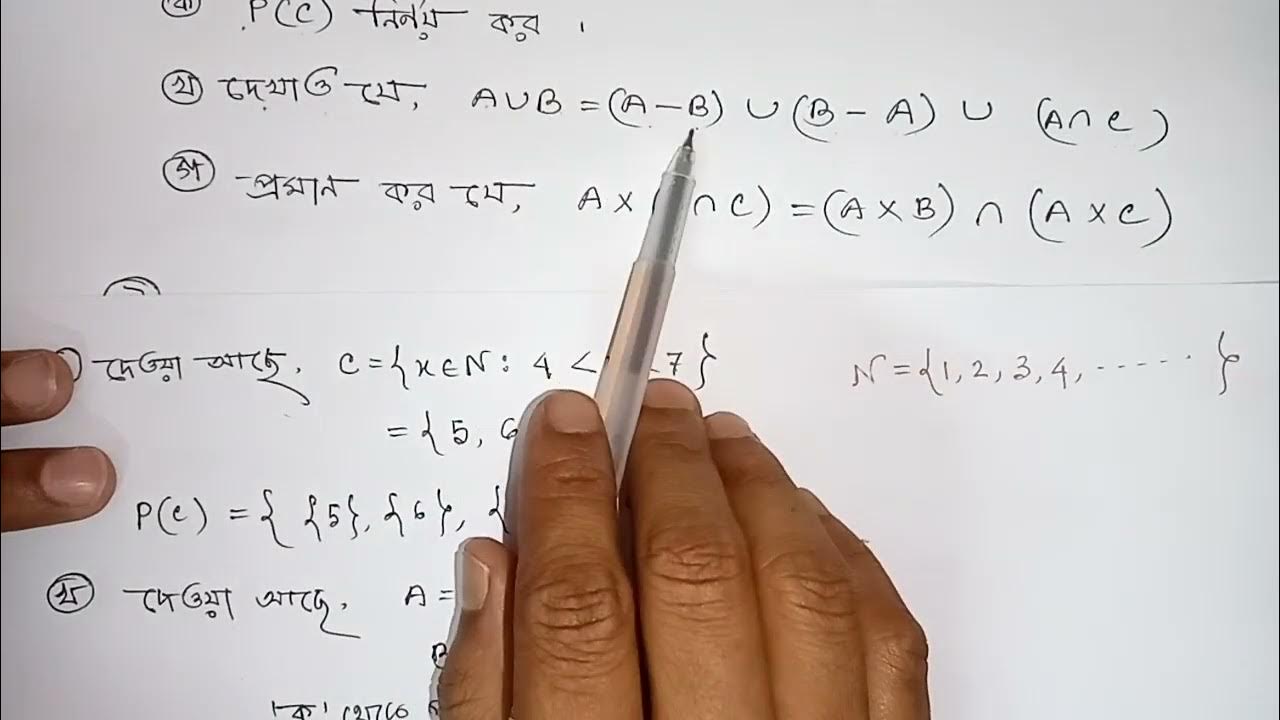 ক P(C) নির্ণয় কর ।
খ দেখাও যে, A∪B = (A – B) ∪ (B – A) ∪ (A∩C)
গ প্রমান কর যে, A × ∩ C) = (A × B) ∩ (A × C)
দেওয়া আছে, C = {x∈N : 4 < < 7} N = {1, 2, 3, 4, ------ }
= {5, 6
P(C) = { {5}, {6}, {
খ দেওয়া আছে, A =
B
'ক' থেকে